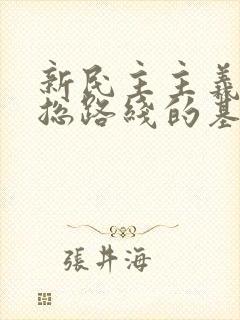 新民主主義
総路綫的基
張井海